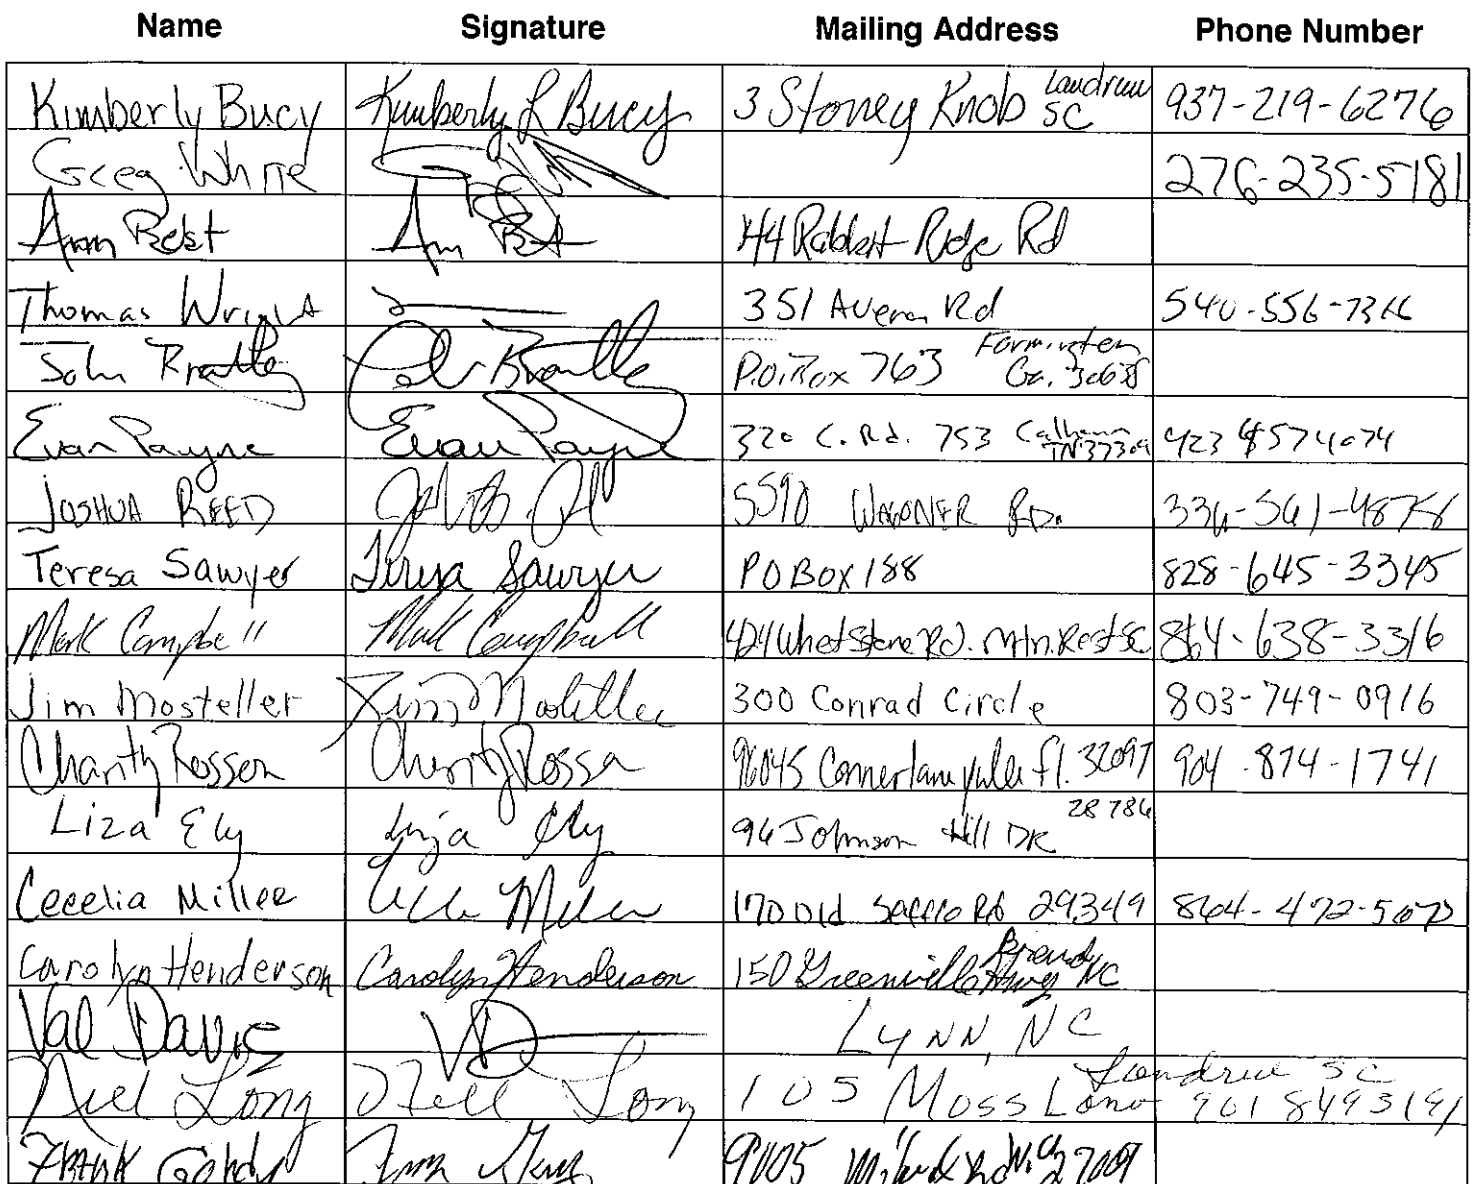 Name Signature Mailing Address Phone Number
Kimberly Bucy Kimberly L Bucy 3 Stoney Knob Landrum SC 937-219-6276
Greg White 276-235-5181
Ann Best Ann Best 44 Rabbit Ridge Rd
Thomas Wright 351 Rd 540-556-7316
John Brantley John Brantley P.O. Box 763 Farmington Ga. 30638
Evan Payne Evan Payne 320 C. Rd. 753 Calhoun TN 37309 423
JOSHUA REED 5590 WAGONER RD.
Teresa Sawyer Teresa Sawyer PO Box 188 828-645-3345
Mark Campbell Mark Campbell 424 Whetstone Rd. Mtn. Rest SC 864-638-3316
Jim Mosteller Jim Mosteller 300 Conrad Circle 803-749-0916
Charity Rosser Charity Rosser 96045 Conner lane yulee fl. 32097 904-874-1741
Liza Ely Liza Ely 96 Johnson Hill DR 28786
Cecelia Miller Miller 170 Old Rd 29349
Carolyn Henderson Carolyn Henderson 150 Greenville Hwy NC
Val Davis VD LYNN, NC
Nell Long Nell Long 105 Moss Lane Landrum SC 901 8493191
FRANK 27009